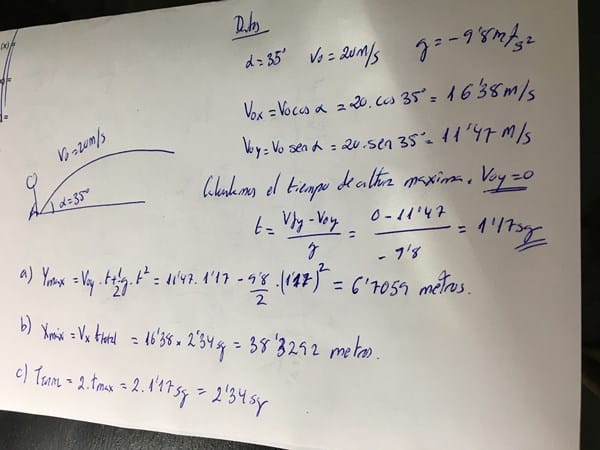 (x) =
Datos
α = 35° V₀ = 20 m/s g = -9'8 m/s²
V₀x = V₀ cos α = 20 · cos 35° = 16'38 m/s
V₀y = V₀ sen α = 20 · sen 35° = 11'47 m/s
V₀ = 20 m/s
α = 35°
Calculamos el tiempo de altura maxima. V₀y = 0
t = (Vfy - V₀y)/g = (0 - 11'47)/(-9'8) = 1'17 sg
a) Ymax = V₀y · t + 1/2 g · t² = 11'47 · 1'17 - 9'8/2 · (1'17)² = 6'7059 metros.
b) Xmáx = Vx ttotal = 16'38 × 2'34 sg = 38'3292 metros.
c) = 2 · tmax = 2 · 1'17 sg = 2'34 sg